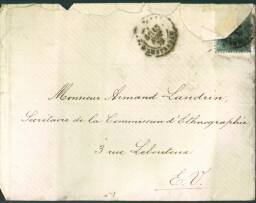 Monsieur Armand Landrin,
Secrétaire de la Commission d'Ethnographie,
3 rue Lebouteux
E. V.